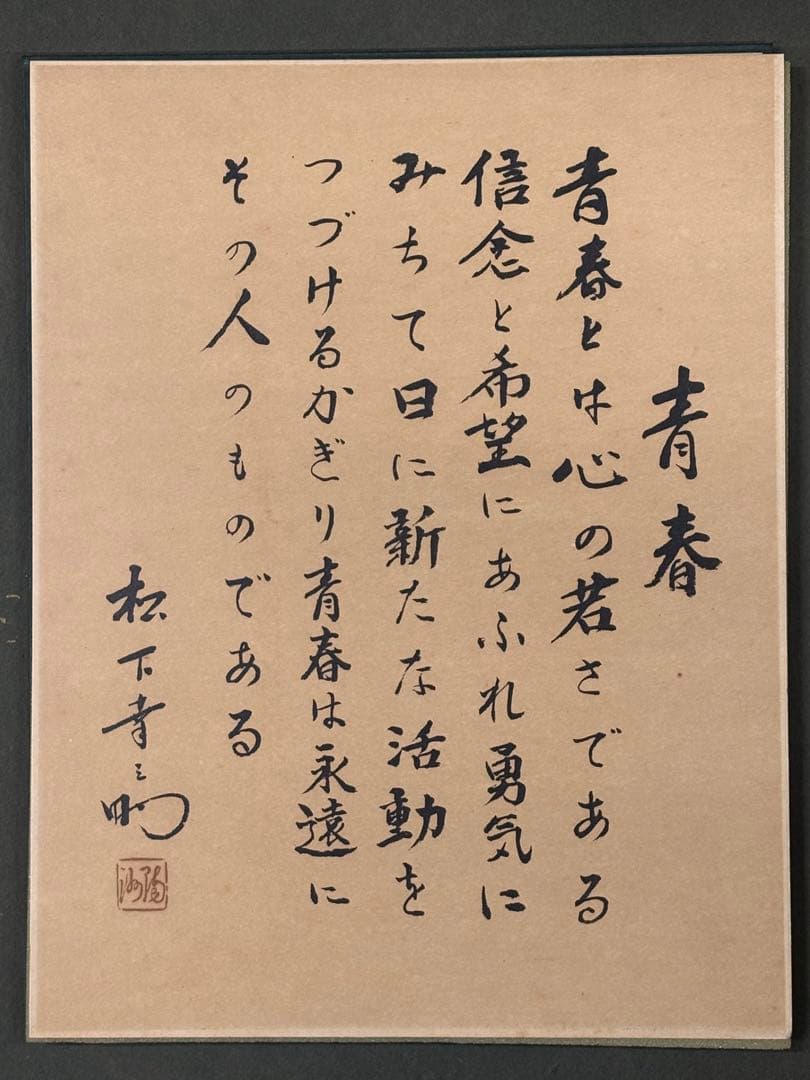 青春
青春とは心の若さである
信念と希望にあふれ勇気に
みちて日に新たな活動を
つづけるかぎり青春は永遠に
その人のものである
松下幸之助